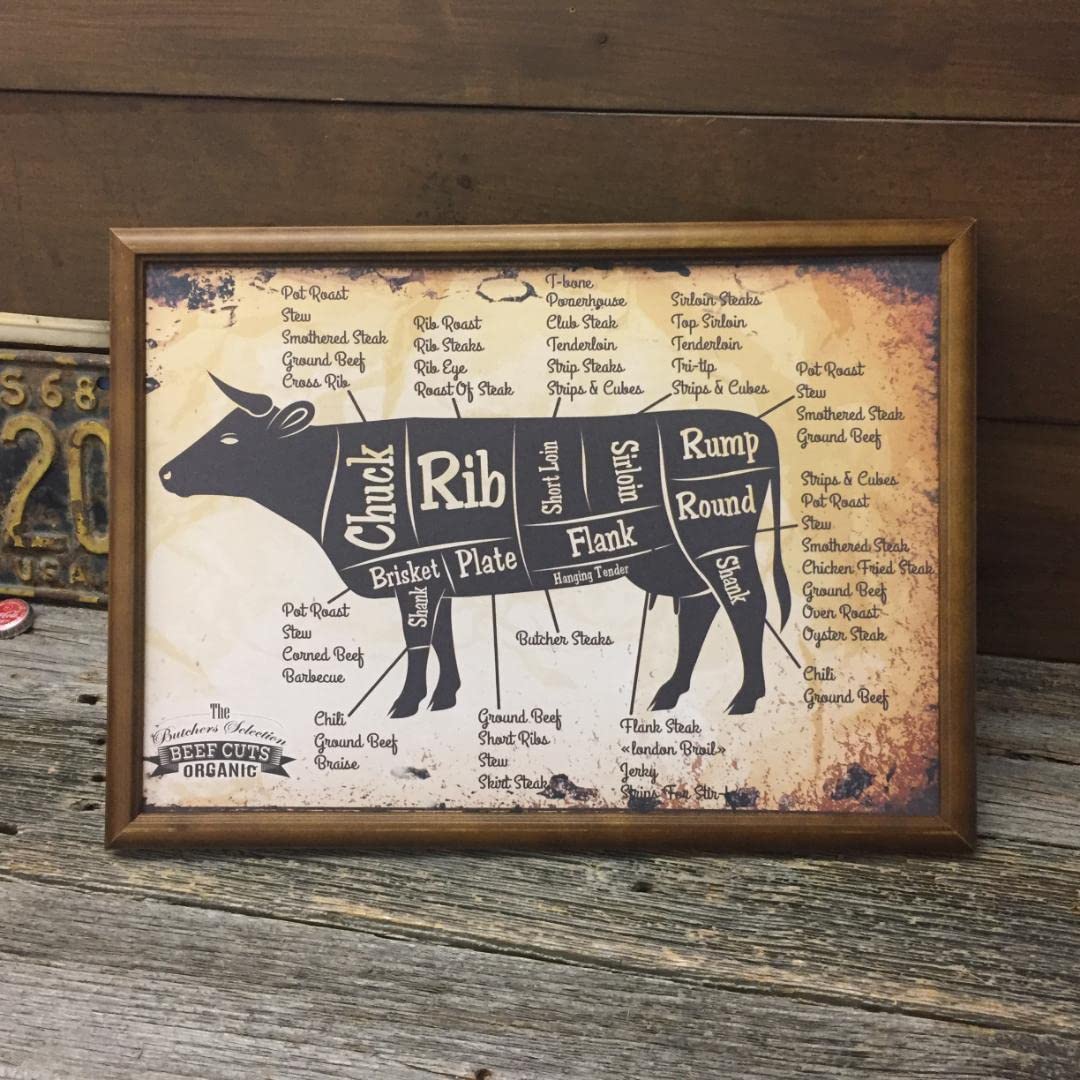 Pot Roast
Stew
Smothered Steak
Ground Beef
Cross Rib
Rib Roast
Rib Steaks
Rib Eye
Roast Of Steak
T-bone
Porterhouse
Club Steak
Tenderloin
Strip Steaks
Strips & Cubes
Sirloin Steaks
Top Sirloin
Tenderloin
Tri-tip
Strips & Cubes
Pot Roast
Stew
Smothered Steak
Ground Beef
Strips & Cubes
Pot Roast
Stew
Smothered Steak
Chicken Fried Steak
Ground Beef
Oven Roast
Oyster Steak
Chili
Ground Beef
Chuck
Rib
Short Loin
Sirloin
Rump
Round
Flank
Hanging Tender
Brisket
Plate
Shank
Shank
Pot Roast
Stew
Corned Beef
Barbecue
Butcher Steaks
Chili
Ground Beef
Braise
Ground Beef
Short Ribs
Stew
Skirt Steak
Flank Steak
«london Broil»
Jerky
Strips For
The
Butchers Selection
BEEF CUTS
ORGANIC
S68
20
USA